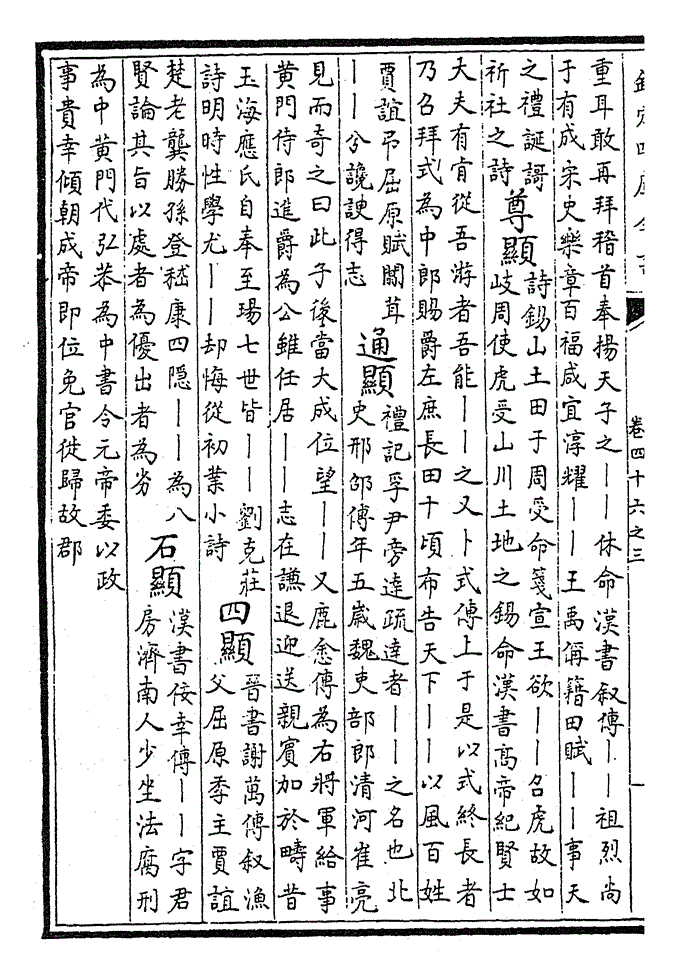 欽定四庫全書
卷四十六之三
重耳敢再拜稽首奉揚天子之丨丨休命漢書叙傳丨丨祖烈尚
于有成宋史樂章百福咸宜淳耀丨丨王禹偁籍田賦丨丨事天
之禮誕謌
祈社之詩
尊顯
詩錫山土田于周受命箋宣王欲丨丨召虎故如
岐周使虎受山川土地之錫命漢書髙帝紀賢士
大夫有肯從吾游者吾能丨丨之又卜式傳上于是以式終長者
乃召拜式為中郎賜爵左庶長田十頃布告天下丨丨以風百姓
賈誼弔屈原賦闒茸
丨丨兮讒諛得志
通顯
禮記孚尹旁達疏達者丨丨之名也北
史邢邵傳年五歲魏吏部郎清河崔亮
見而奇之曰此子後當大成位望丨丨又鹿悆傳為右將軍給事
黄門侍郎進爵為公雖任居丨丨志在謙退迎送親賓加於疇昔
玉海應氏自奉至瑒七世皆丨丨劉克莊
詩明時性學尤丨丨却悔從初業小詩
四顯
晉書謝萬傳叙漁
父屈原季主賈誼
楚老龔勝孫登嵇康四隠丨丨為八
賢論其旨以處者為優出者為劣
石顯
漢書佞幸傳丨丨字君
房濟南人少坐法腐刑
為中黄門代弘恭為中書令元帝委以政
事貴幸傾朝成帝即位免官徙歸故郡